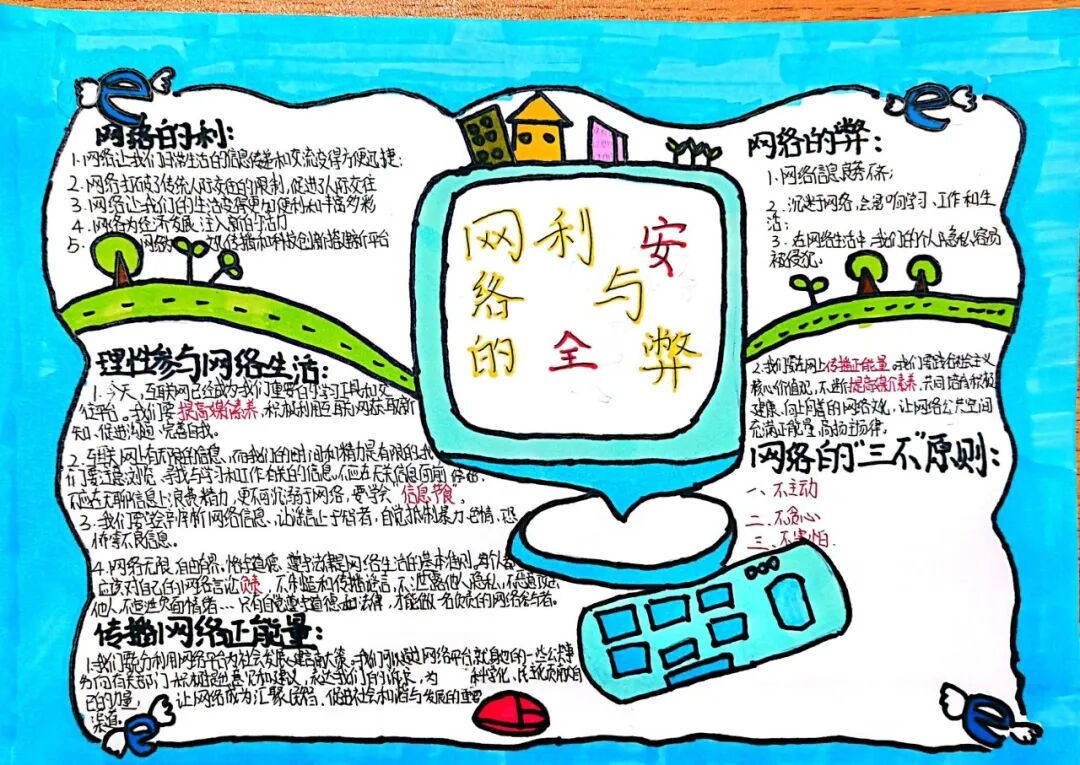 网络的利:
1.网络让我们日常生活的信息传递和交流变得方便迅捷;
2.网络打破了传统人际交往的限制,促进了人际交往
3.网络让我们的生活变得更加便利和丰富多彩
4.网络为经济发展注入新的活力
5.网络为 传播和科技创新搭建新平台
网络的弊:
1.网络信息良莠不齐;
2.沉迷于网络,会影响学习、工作和生
活;
3.在网络生活中,我们的个人隐私容易
被侵犯。
网络的
利与弊
安全
理性参与网络生活:
1.今天,互联网已经成为我们重要的学习工具和交
往平台。我们要提高媒介素养,积极利用互联网获取新
知、促进沟通、完善自我。
2.互联网上有无限的信息,而我们的时间和精力是有限的,我
们要注意浏览、寻找与学习和工作有关的信息,不应在无关信息面前停留,
不应在无聊信息上浪费精力,更不可沉溺于网络,要学会“信息节食”。
3.我们要学会辨析网络信息,让谣言止于智者,自觉抵制暴力、色情、恐
怖等不良信息。
4.网络无限,自由有界,恪守道德、遵守法律是网络生活的基本准则。每个人都
应该对自己的网络言论负责,不制造和传播谣言,不泄露他人隐私,不恶意攻击
他人,不宣泄负面情绪…只有自觉遵守道德和法律,才能做一名负责的网络参与者。
传播网络正能量:
1.我们要充分利用网络平台为社会发展建言献策。我们可以通过网络平台就身边的一些公共事
务向有关部门积极提出意见和建议,表达我们的诉求,为 科学化、民主化贡献自
己的力量, 让网络成为汇聚民智、促进社会和谐与发展的重要
渠道。
2.我们要在网上传播正能量。我们要践行社会主义
核心价值观,不断提高媒介素养,共同培育积极
健康、向上向善的网络文化,让网络公共空间
充满正能量、高扬主旋律。
网络的“三不”原则:
一、不主动
二、不贪心
三、不害怕.